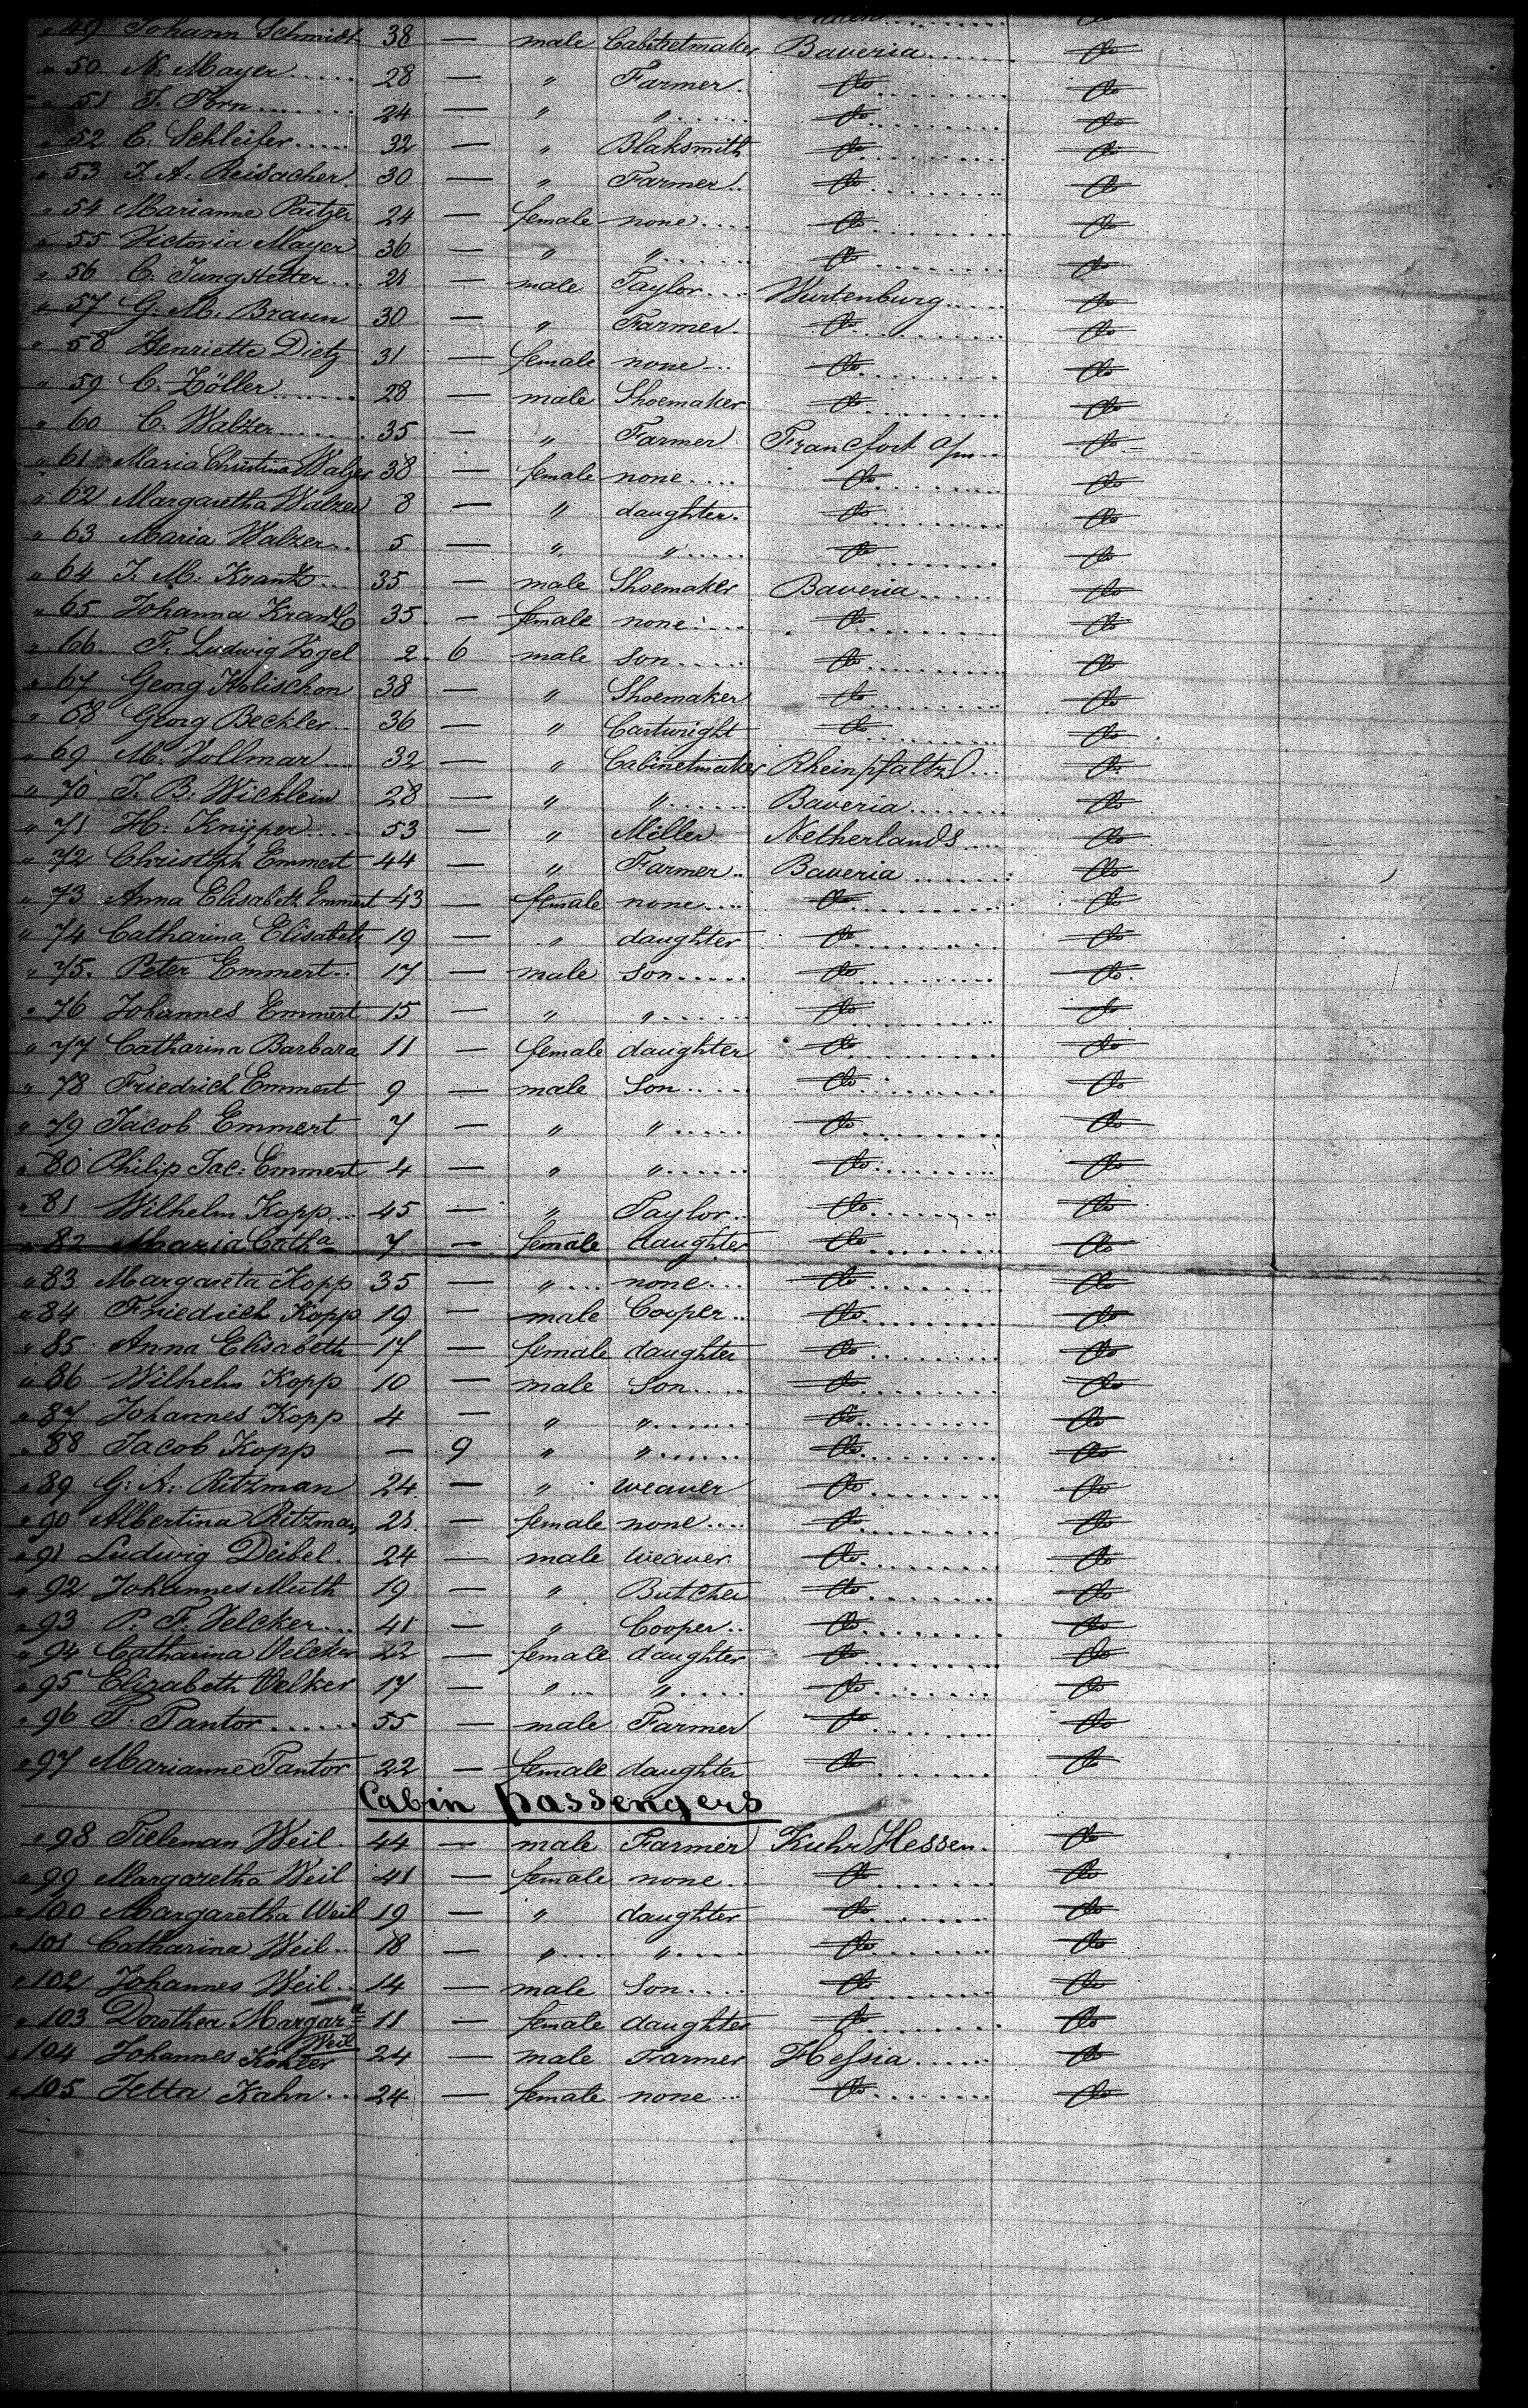 " 49 Johann Schmidt 38 — male Cabinetmaker Baveria do
" 50. N. Mayer 28 — " Farmer. do do
" 51 24 — " " do do
" 52 C. Schleifer 32 — " Blaksmith do do
" 53 J. A. Reisacher. 30 — " Farmer. do do
" 54 Marianne 24 — female none do do
" 55 Victoria Mayer 36 — " " do do
" 56 C. Jungstetter 21 — male Taylor Wurtenburg do
" 57 G. M. Braun 30 — " Farmer. do do
" 58 Henriette Dietz 31 — female none do do
" 59 C. Zöller 28 — male Shoemaker do do
" 60 C. Walzer 35 — " Farmer Francfort a/m do
" 61 Maria Christina Walzer 38 — female none do do
" 62 Margaretha Walzer 8 — " daughter. do do
" 63 Maria Walzer 5 — " " do do
" 64 J. M. Krantz 35 — male Shoemaker Baveria do
" 65 Johanna Krantz 35. — female none do do
" 66. F. Ludwig Vogel 2. 6 male son do do
" 67 Georg Kolischon 38 — " Shoemaker do do
" 68 Georg Beckler 36 — " Cartwright do do
" 69 M. Vollmar 32 — " Cabinetmaker Rheinpfaltz do
" 70 J. B. Wicklein 28 — " " Baveria do
" 71 H. Knijper 53 — " Miller Netherlands do
" 72 Christoph Emmert 44 — " Farmer Baveria do
" 73 Anna Elisabeth Emmert 43 — female none do do
" 74 Catharina Elisabeth 19 — " daughter do do
" 75. Peter Emmert 17 — male son do do
" 76 Johannes Emmert 15 — " " do do
" 77 Catharina Barbara 11 — female daughter do do
" 78 Friedrich Emmert 9 — male Son do do
" 79 Jacob Emmert 7 — " " do do
" 80 Philip Jac: Emmert 4 — " " do do
" 81 Wilhelm Kopp 45 — " Taylor do do
" 82 Maria Catha 7 — female daughter do do
" 83 Margareta Kopp 35 — " none do do
" 84 Friedrich Kopp 19 — male Cooper do do
" 85 Anna Elisabeth 17 — female daughter do do
" 86 Wilhelm Kopp 10 — male Son do do
" 87 Johannes Kopp 4 — " " do do
" 88 Jacob Kopp — 9 " " do do
" 89 G: A: Ritzman 24. — " weaver do do
" 90 Albertina Ritzman 21. — female none do do
" 91 Ludwig Deibel. 24 — male weaver do do
" 92 Johannes Muth 19 — " Butcher do do
" 93 P. F. Velcker 41 — " Cooper do do
" 94 Catharina Velcker 22 — female daughter do do
" 95 Elizabeth Velker 17 — " " do do
" 96 Tantor 55 — male Farmer do do
" 97 Marianne Tantor 22 — female daughter do do
Cabin passengers
" 98 Tieleman Weil. 44 — male Farmer Kuhr Hessen. do
" 99 Margaretha Weil 41 — female none do do
" 100 Margaretha Weil 19 — " daughter do do
" 101 Catharina Weil 18 — " " do do
" 102 Johannes Weil 14 — male Son do do
" 103 Dorothea Margara Weil 11 — female daughter do do
" 104 Johannes Kohler 24 — male Farmer Hessia do
" 105 Jetta Kahn 24 — female none do do